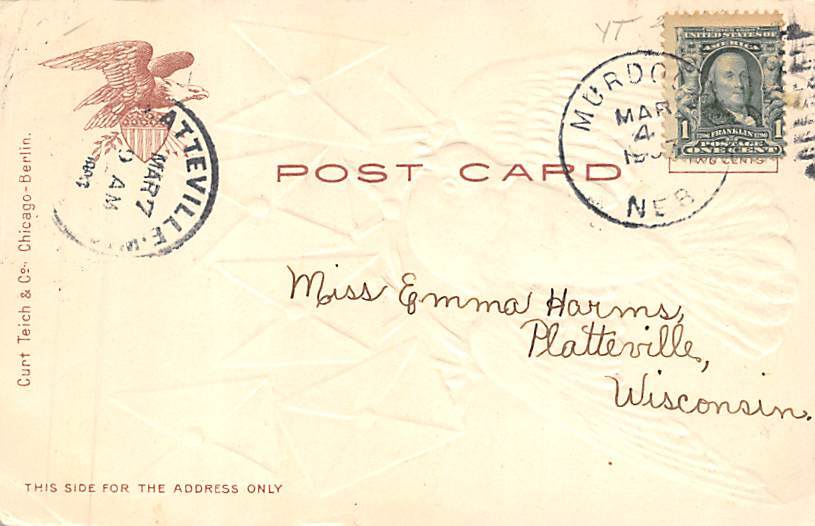 YT
UNITED STATES OF
AMERICA
1 FRANKLIN 1
POSTAGE
ONE CENT
TWO CENTS
MAR
4
NEB
MAR 7
AM
1907
POST CARD
Curt Teich & Co., Chicago-Berlin.
Miss Emma Harms,
Platteville,
Wisconsin.
THIS SIDE FOR THE ADDRESS ONLY